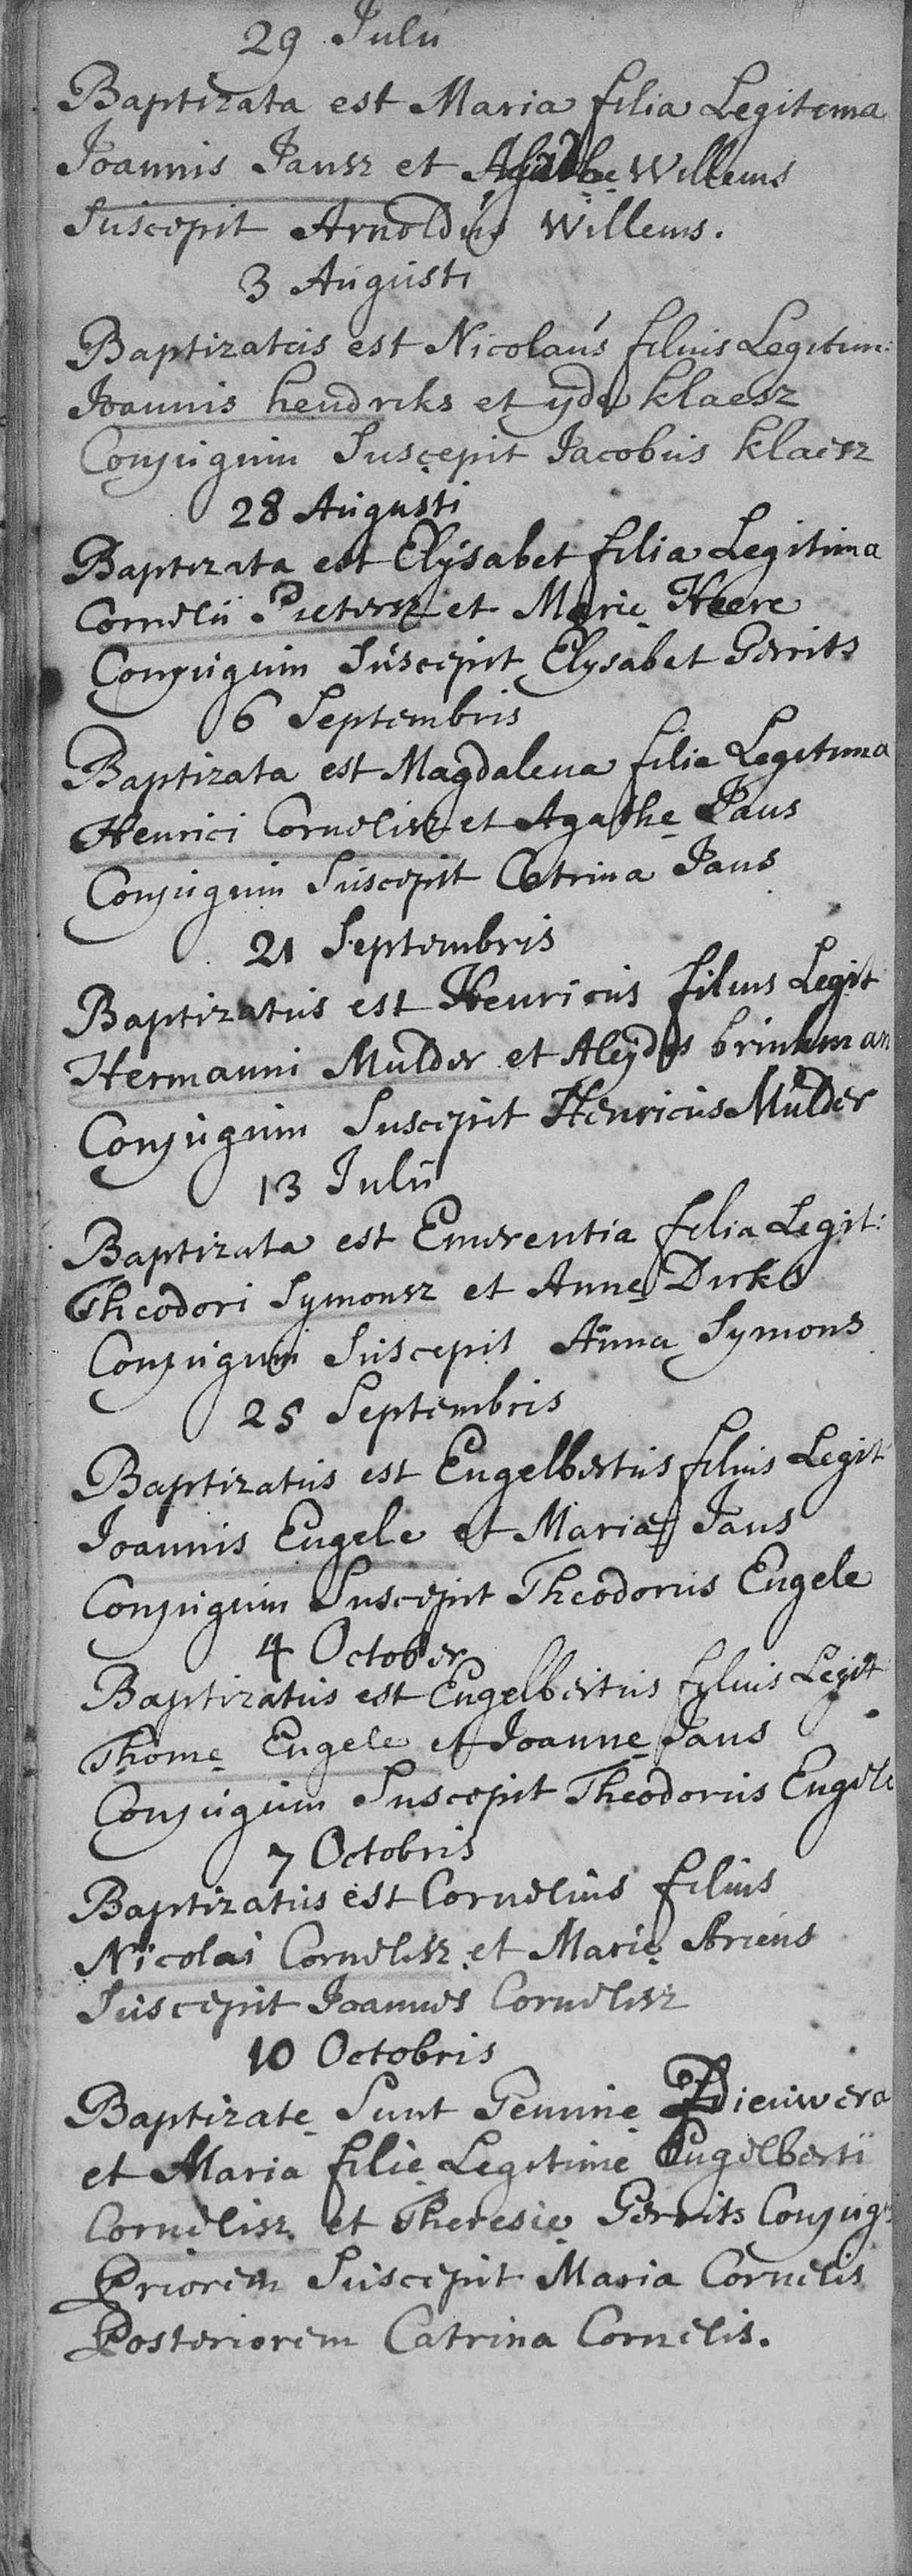 29 Julii
Baptizata est Maria filia Legitima
Joannis Jansz et Agathe Willems
Suscepit Arnoldus Willems.
3 Augusti
Baptizatus est Nicolaus filius Legitim:
Joannis hendriks et yde klaesz
Conjugum Suscepit Jacobus klaesz
28 Augusti
Baptizata est Elysabet filia Legitima
Cornelii Pietersz et Marie Heere
Conjugum Suscepit Elysabet Gerrits
6 Septembris
Baptizata est Magdalena filia Legitima
Henrici Cornelisz et Agathe Jans
Conjugum Suscepit Catrina Jans
21 Septembris
Baptizatus est Henricus filius Legit
Hermanni Mulder et Aleydis brinkman
Conjugum Suscepit Henricus Mulder
13 Julii
Baptizata est Emerentia filia Legit:
Theodori Symonsz et Anne Dirks
Conjugum Suscepit Anna Symons
25 Septembris
Baptizatus est Engelbertus filius Legit
Joannis Engele et Mariae Jans
Conjugum Suscepit Theodorus Engele
4 October
Baptizatus est Engelbertus filius Legit
Thome Engele et Joanne Jans
Conjugum Suscepit Theodorus Engele
7 Octobris
Baptizatus est Cornelius filius
Nicolai Cornelisz et Marie Ariens
Suscepit Joannes Cornelisz
10 Octobris
Baptizate Sunt Gemine Dieuwera
et Maria filie Legitime Engelberti
Cornelisz et Theresie Gerrits Conjug:
Priorem Suscepit Maria Cornelis
Posteriorem Catrina Cornelis.